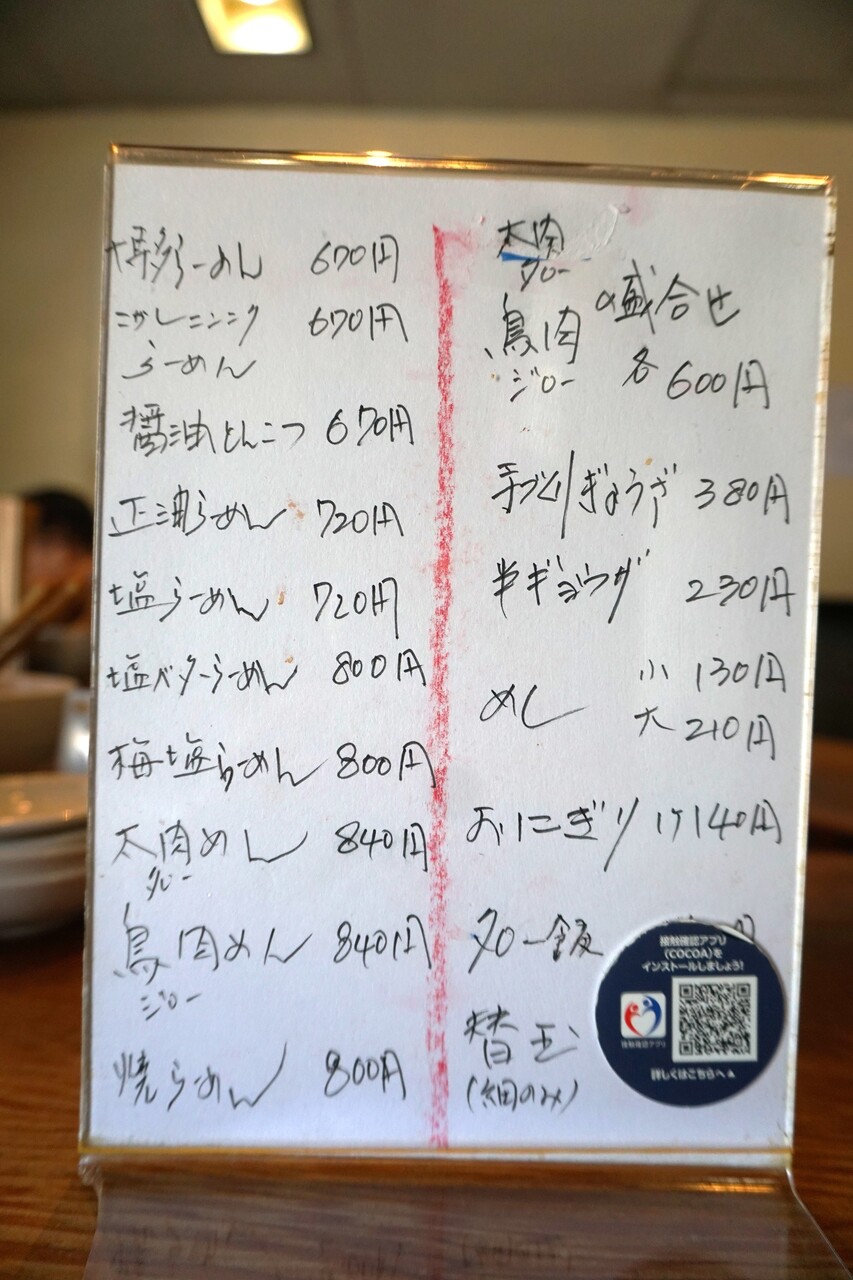 博多らーめん 670円
こがしニンニク 670円
らーめん
醤油とんこつ 670円
正油らーめん 720円
塩らーめん 720円
塩バターらーめん 800円
梅塩らーめん 800円
太肉めし 840円
タロー
鳥肉めん 840円
ジロー
焼らーめん 800円
太肉
タロー
の盛合せ
鳥肉
ジロー
各600円
手づくりぎょうざ 380円
半ギョウザ 230円
めし 小 130円
大 210円
おにぎり 1ケ140円
タロー飯 円
替玉
(細のみ)
接触確認アプリ
(COCOA)を
インストールしましょう!
接触確認アプリ
詳しくはこちらへ▲